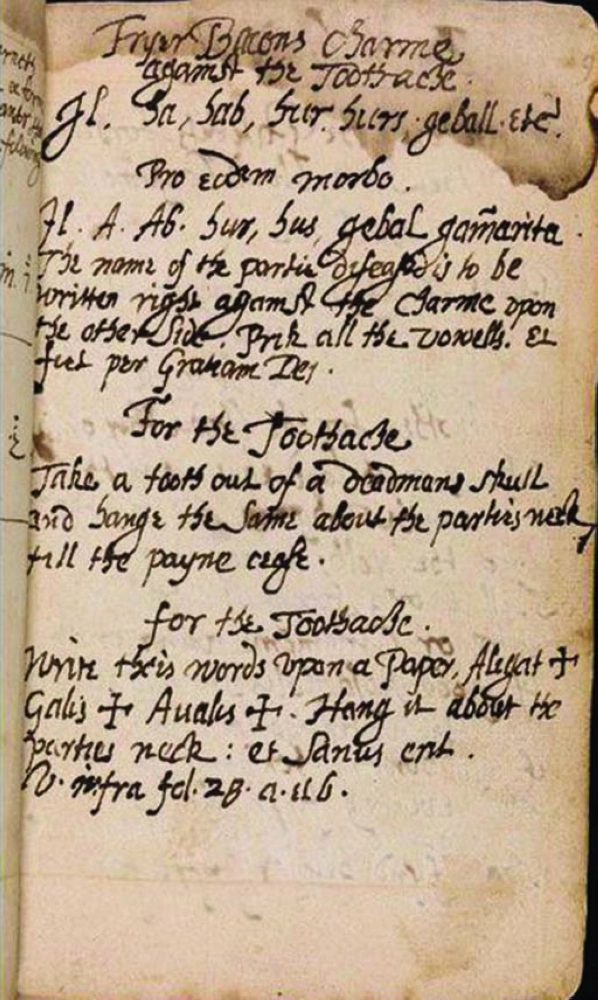 Fryer Bacons Charme
against the Toothache.
Jl. ha, hab, hur. hurs. geball. etc.
Pro eidem morbo.
Jl. A. Ab. hur, hus, gebal gam̄arita.
The name of the partie diseased is to be
written right against the Charme vpon
the other side. Prik all the vowells. Et
fiet per Gratiam Dei.
For the Toothache
Take a tooth out of a deadmans skull
and hange the same about the parties neck,
till the payne cease.
for the Toothache.
Write theis words vpon a Paper, Alegat ✝
Galis ✝ Aualis ✝. Hang it about the
parties neck: et Sanus erit.
V. infra fol. 28. a. et b.